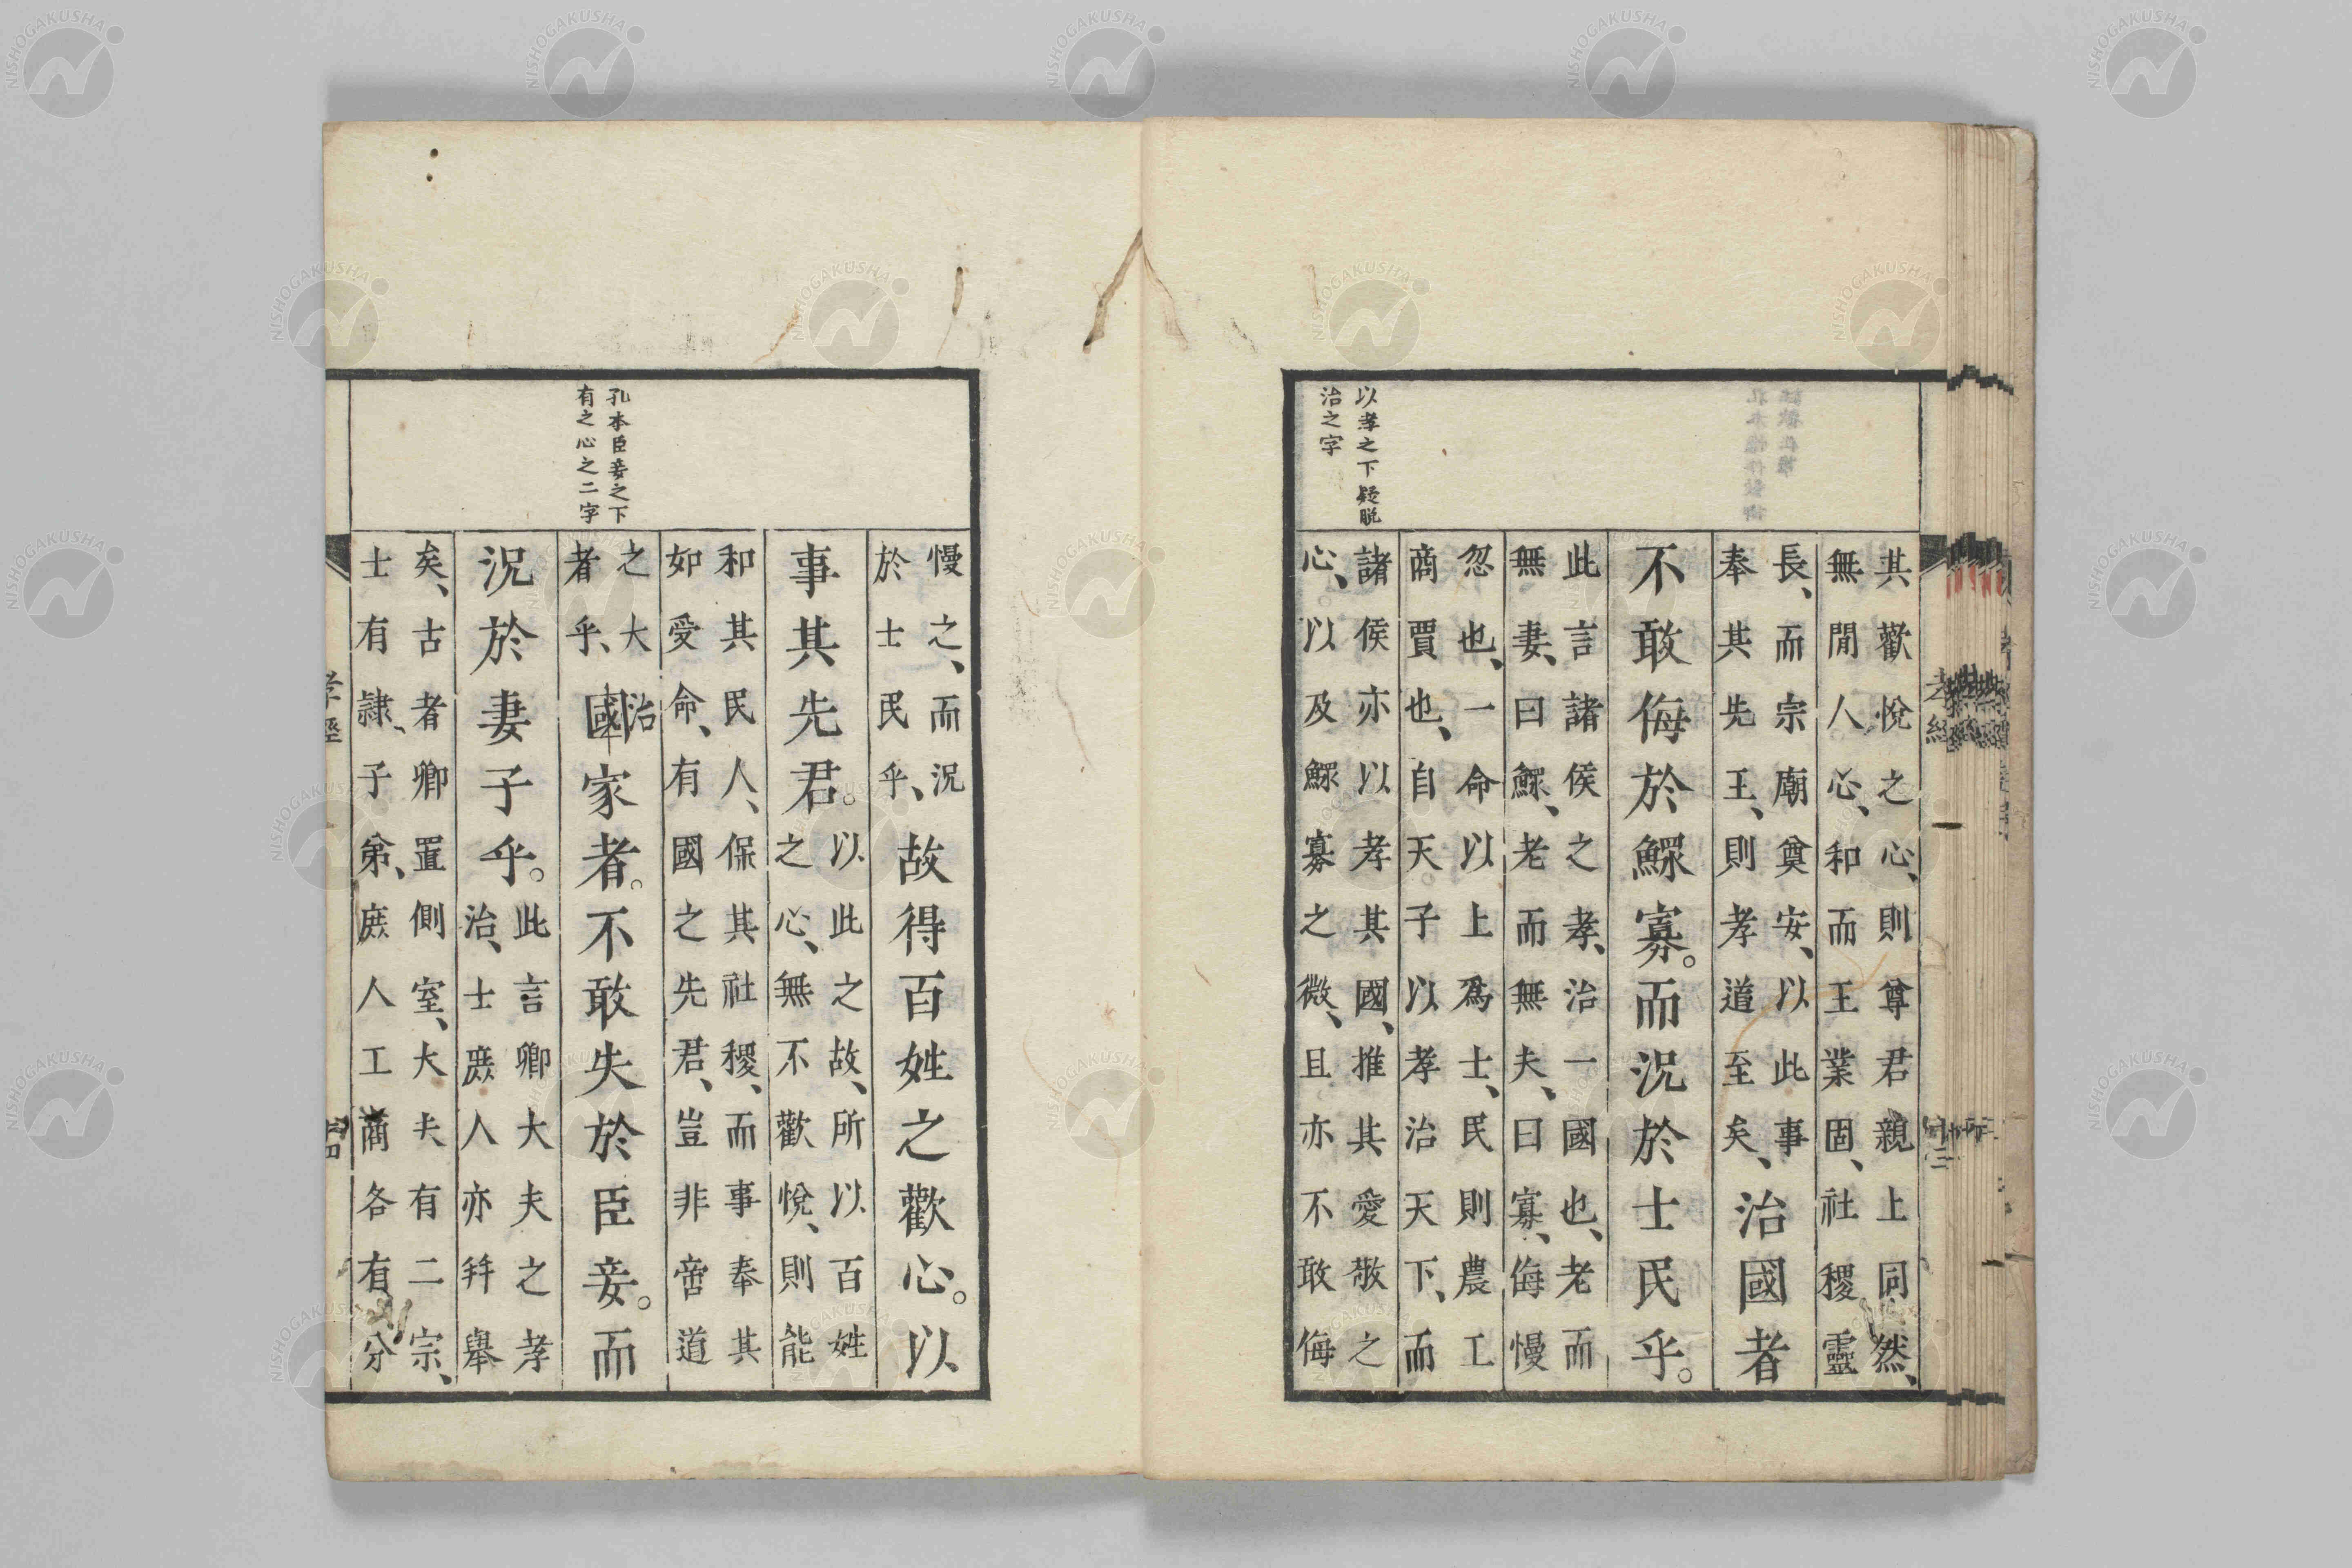 以孝之下疑脱
治之字
其歡悅之心、則尊君親上同然、
無閒人心、和而王業固、社稷靈
長、而宗廟奠安、以此事
奉其先王、則孝道至矣、
治國者
不敢侮於鰥寡。而況於士民乎。
此言諸侯之孝、治一國也、老而
無妻、曰鰥、老而無夫、曰寡、侮慢
忽也、一命以上爲士、民則農工
商賈也、自天子以孝治天下、而
諸侯亦以孝其國、推其愛敬之
心、以及鰥寡之微、且亦不敢侮
孔本臣妾之下
有之心之二字
慢之、而況
於士民乎、
故得百姓之歡心。以
事其先君。
以此之故、所以百姓
之心、無不歡悅、則能
和其民人、保其社稷、而事奉其
如愛命、有國之先君、豈非啻道
之大
者乎、
治國家者。不敢失於臣妾。而
況於妻子乎。
此言卿大夫之孝
治、士庶人亦幷舉
矣、古者卿置側室、大夫有二宗、
士有隷、子弟、庶人工商各有分
孝經
NISHOGAKUSHA